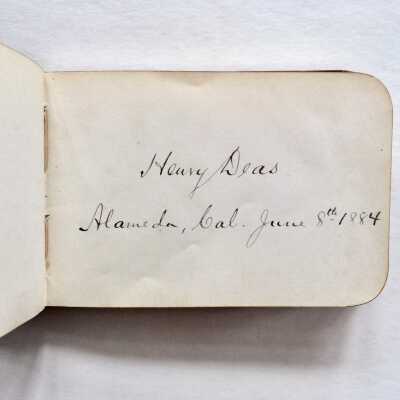 Henry Deas
Alameda, Cal. June 8th 1884